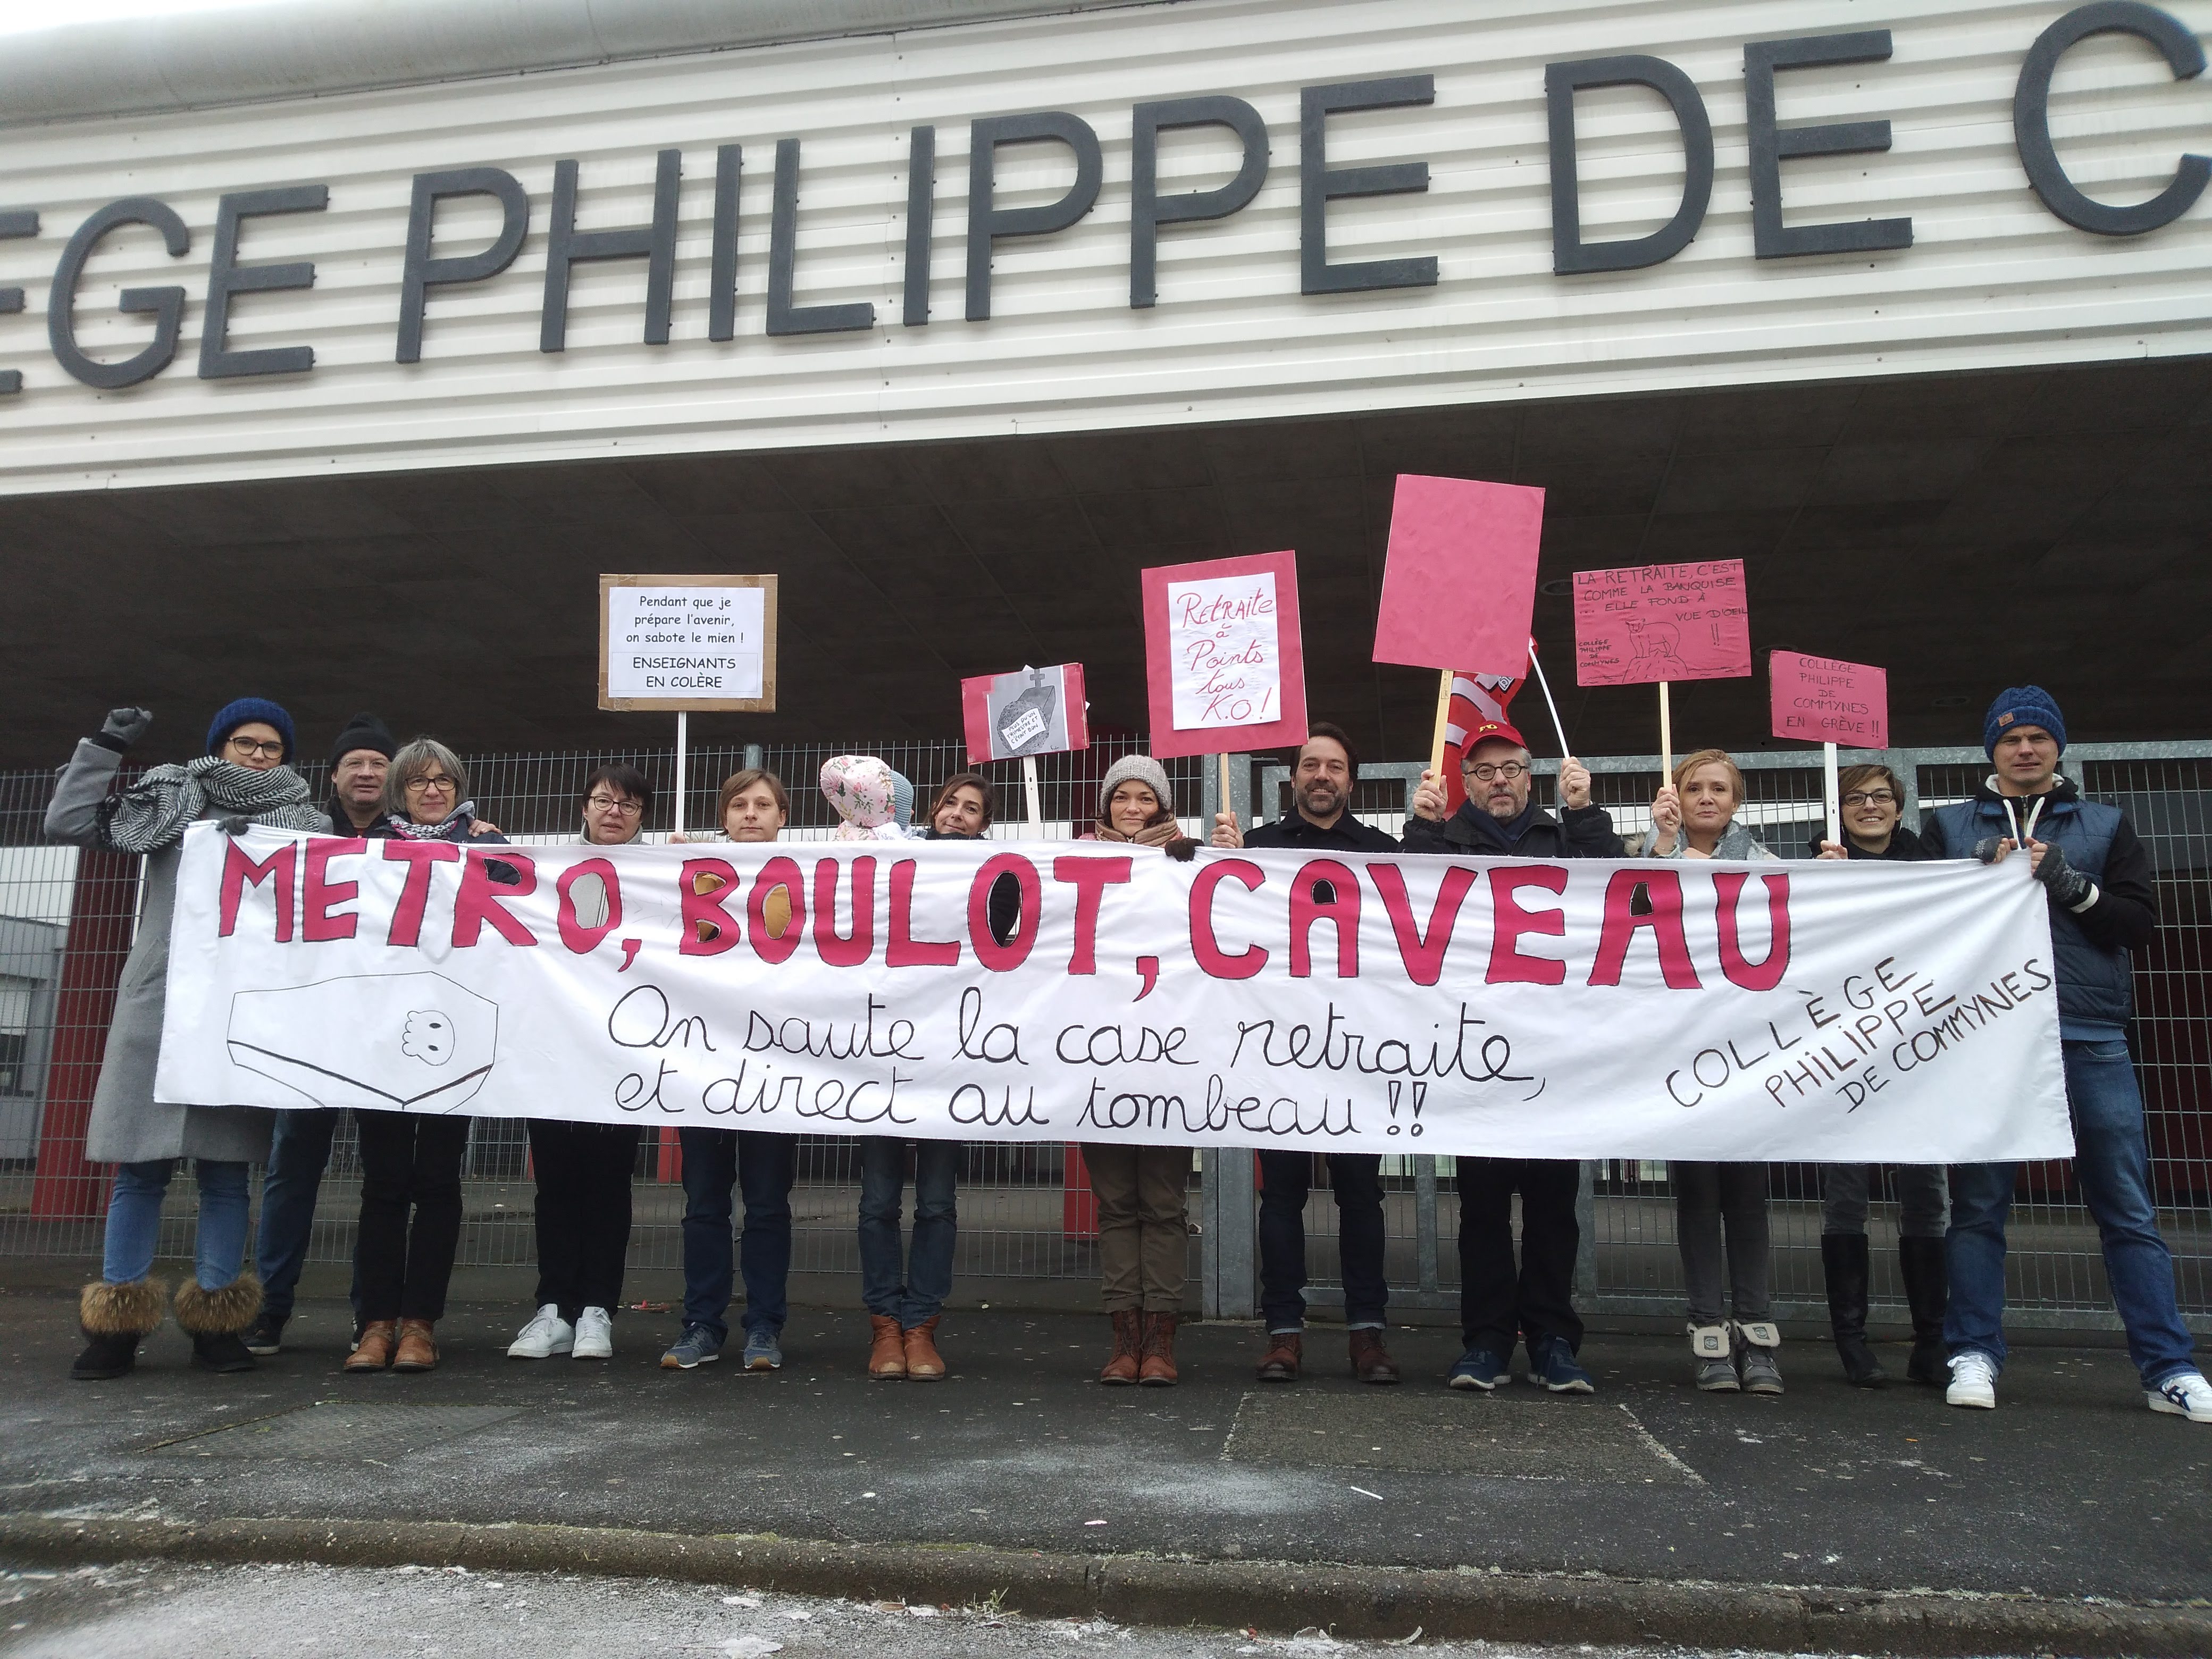 EGE PHILIPPE DE C
Pendant que je
prépare l'avenir,
on sabote le mien !
ENSEIGNANTS
EN COLÈRE
PLUS QU'UN
TRIMESTRE ET
C'ÉTAIT BON
RETRAITE
à
Points
tous
K.O!
LA RETRAITE, C'EST
COMME LA BANQUISE
... ELLE FOND À
VUE D'OEIL
!!
COLLÈGE
PHILIPPE
DE
COMMYNES
COLLÈGE
PHILIPPE
DE
COMMYNES
EN GRÈVE !!
METRO, BOULOT, CAVEAU
On saute la case retraite,
et direct au tombeau !!
COLLÈGE
PHILIPPE
DE COMMYNES